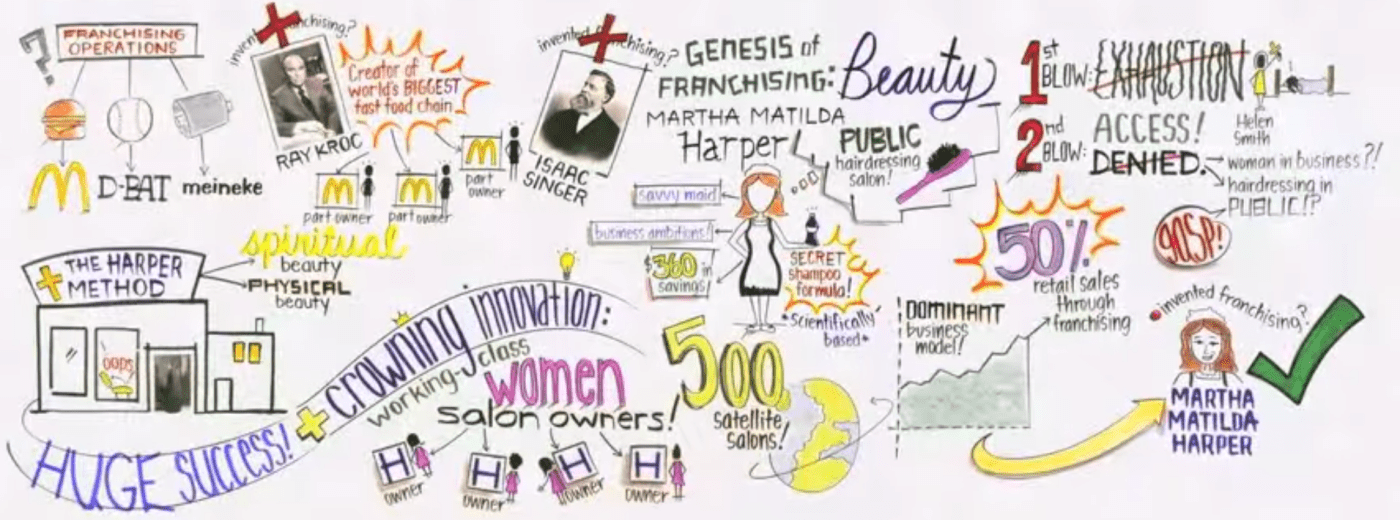 ?
FRANCHISING
OPERATIONS
M
D-BAT
meineke
invented franchising?
RAY KROC
Creator of
world's BIGGEST
fast food chain
M
part owner
M
part owner
M
part
owner
invented franchising?
ISAAC
SINGER
GENESIS of
FRANCHISING:
Beauty
MARTHA MATILDA
Harper!
PUBLIC
hairdressing
salon!
savvy maid
business ambitions!
$360 in
savings!
SECRET
shampoo
formula!
*Scientifically
based*
1st
BLOW:
EXHAUSTION
Helen
Smith
2nd
BLOW:
ACCESS!
DENIED.
woman in business?!
hairdressing in
PUBLIC!?
gasp!
THE HARPER
METHOD
spiritual
beauty
PHYSICAL
beauty
OOPS
HUGE SUCCESS!
+ crowning innovation:
working-class
women
salon owners!
H
owner
H
owner
H
owner
H
owner
500
satellite
salons!
DOMINANT
business
model!
50%
retail sales
through
franchising
invented franchising?
MARTHA
MATILDA
HARPER